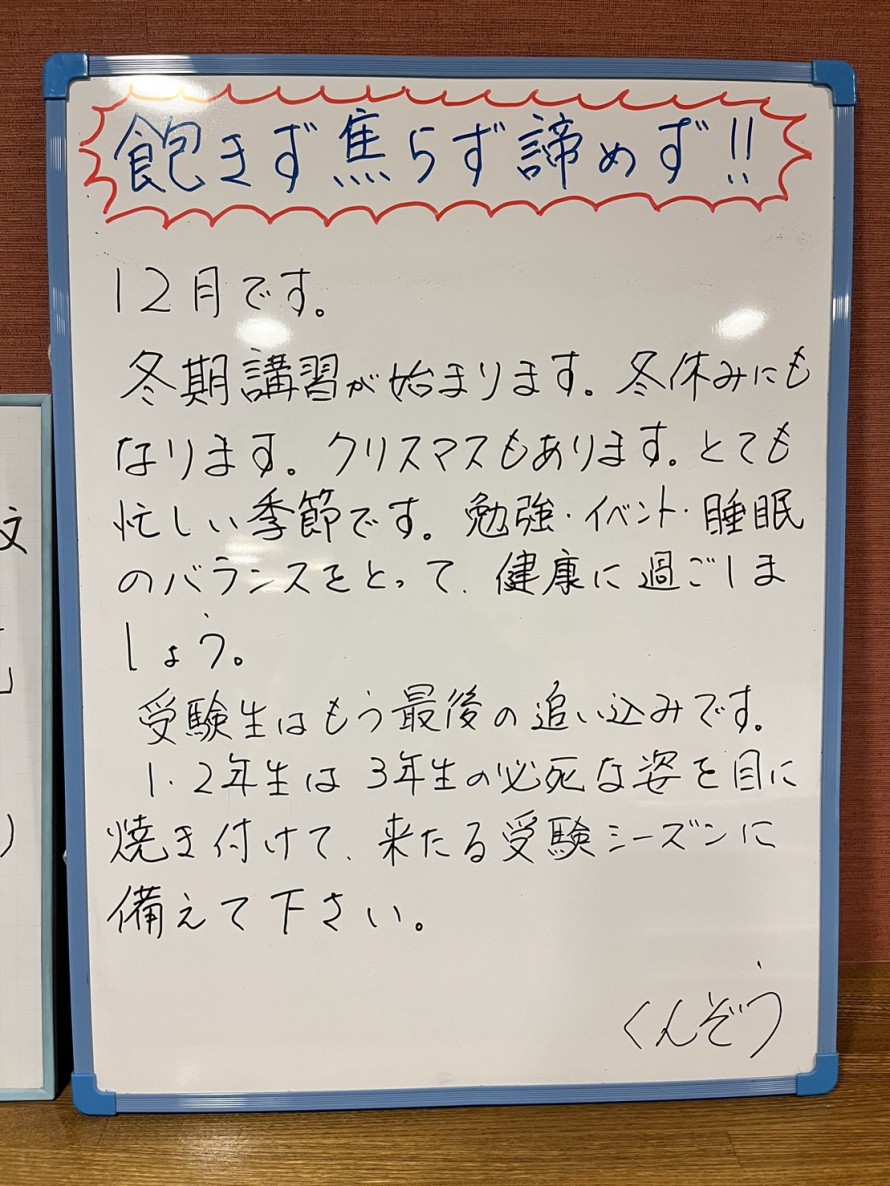 飽きず焦らず諦めず!!
12月です。
冬期講習が始まります。冬休みにも
なります。クリスマスもあります。とても
忙しい季節です。勉強・イベント・睡眠
のバランスをとって、健康に過ごしま
しょう。
受験生はもう最後の追い込みです。
1・2年生は3年生の必死な姿を目に
焼き付けて、来たる受験シーズンに
備えて下さい。
くんぞう